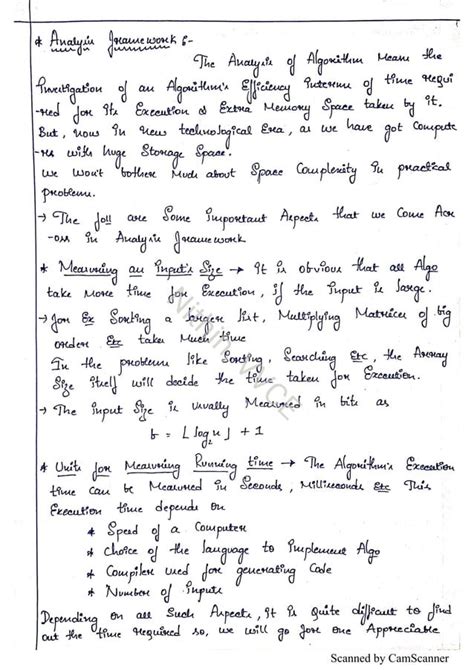 * Analysis Framework :-
The Analysis of Algorithm Means the
Investigation of an Algorithm's Efficiency Interms of time requi
-red for its Execution & Extra Memory Space taken by it.
But, now in new technological Era, as we have got Compute
-rs with huge Storage Space.
we won't bother Much about Space Complexity in practical
problem.
→ The foll are Some Important Aspects that we Come Acr
-oss in Analysis Framework
* Measuring an Input's Size → it is obvious that all Algo
take more time for Execution, if the Input is large.
→ for Ex Sorting a larger list, Multiplying Matrices of big
order Etc takes Much time
In the problem like Sorting, Searching Etc, the Array
Size itself will decide the time taken for Execution.
→ The input Size is usually Measured in bits as
b = ⌊log₂n⌋ + 1
* Units for Measuring Running time → The Algorithm's Execution
time can be Measured in Seconds, Milliseconds Etc This
Execution time depends on
* Speed of a Computer
* Choice of the language to Implement Algo
* Compiler used for generating Code
* Number of Inputs
Depending on all Such Aspects, it is quite difficult to find
out the time required so, we will go for one Appreciable
Scanned by CamScanner